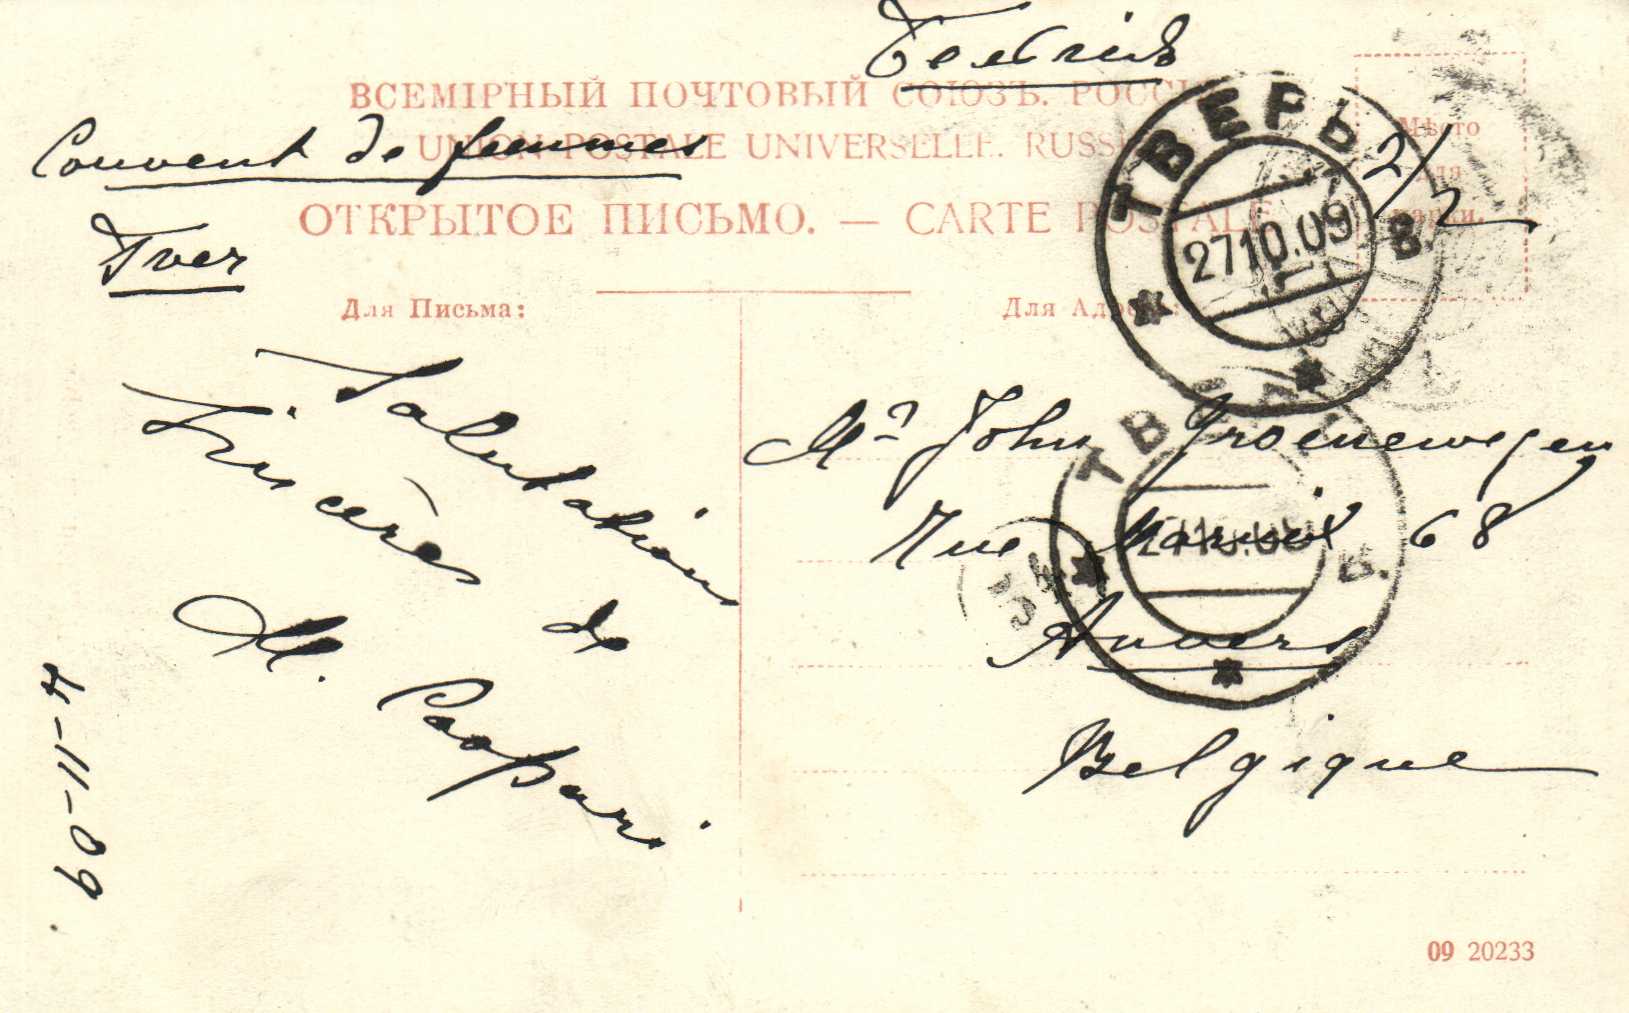 Бельгія
ВСЕМІРНЫЙ ПОЧТОВЫЙ СОЮЗЪ. РОССІЯ
UNION POSTALE UNIVERSELLE. RUSSIE
ОТКРЫТОЕ ПИСЬМО. — CARTE POSTALE
Мѣсто
для
марки.
Couvent de femmes
Tver
2/2
ТВЕРЬ
27 10. 09
В.
Для Письма:
Для Адреса:
Salutations
sincères de
M. Caspari
4-11-09
Mr John Groenewegen
Rue Marnix 68
Anvers
Belgique
ТВЕРЬ
27 10. 09
В.
09 20233